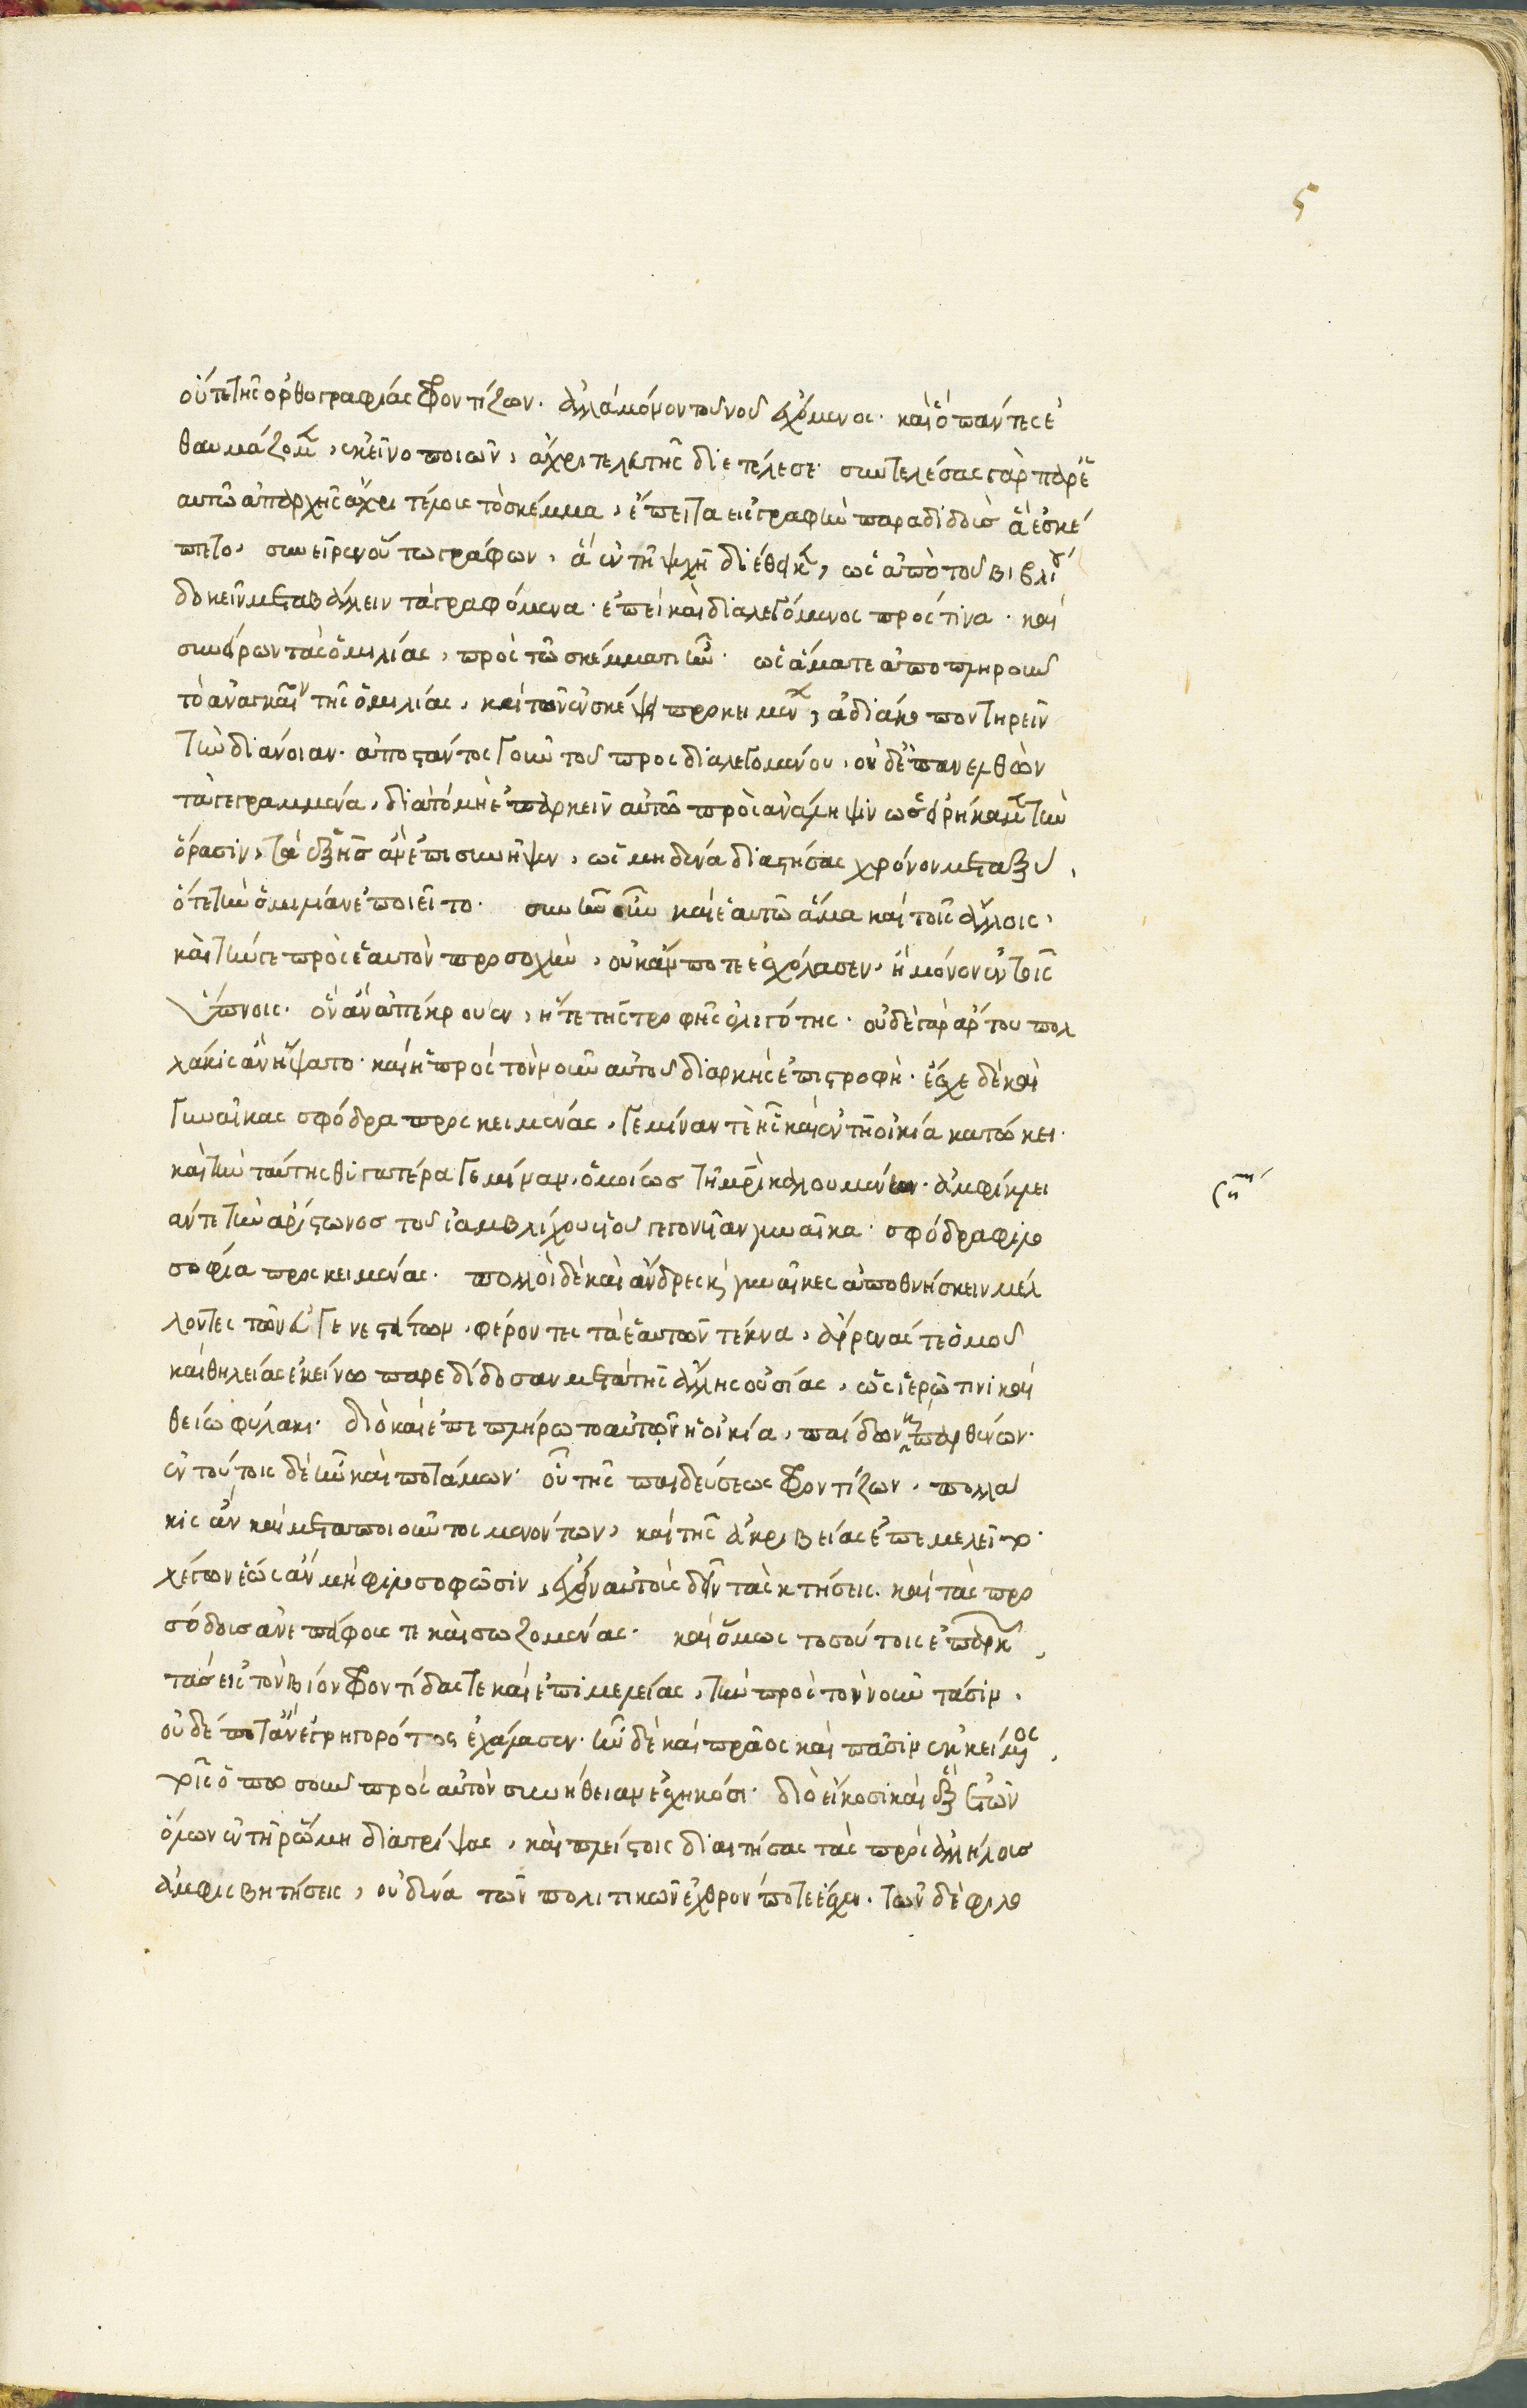 5
οὔτε τῆς ὀρθογραφίας φροντίζων· ἀλλὰ μόνον τοῦ νοῦ ἐχόμενος· καὶ ὃ πάντες ἐ
θαυμάζομεν, ἐκεῖνο ποιῶν, ἄχρι τελευτῆς διετέλεσε· συντελέσας γὰρ παρ' ἑ
αυτῶ ἀπ' ἀρχῆς ἄχρι τέλους τὸ σκέμμα, ἔπειτα εἰς γραφὴν παραδιδοὺς ἃ ἐσκέ
πτετο, συνεῖρεν οὕτω γράφων, ἃ ἐν τῆ ψυχῆ διέθηκεν, ὡς ἀπὸ τοῦ βιβλίου
δοκεῖν μεταβάλλειν τὰ γραφόμενα· ἐπεὶ καὶ διαλεγόμενος πρός τινα· καὶ
συνείρων τὰς ὁμιλίας, πρὸς τῶ σκέμματι ἦν· ὡς ἅμα τε ἀποπληροῦν
τὸ ἀναγκαῖον τῆς ὁμιλίας, καὶ τῶν ἐν σκέψει προκειμένων, ἀδιάκοπον τηρεῖν
τὴν διάνοιαν· ἀποστάντος γοῦν τοῦ προσδιαλεγομένου, οὐδ' ἐπανελθὼν
τὰ γεγραμμένα, διὰ τὸ μὴ ἐπαρκεῖν αὐτῶ πρὸς ἀνάληψιν ὡς εἰρήκαμεν τὴν
ὅρασιν, τὰ ἑξῆς ἂν ἐπισυνῆψεν, ὡς μηδένα διαστήσας χρόνον μεταξὺ,
ὅτε τὴν ὁμιλίαν ἐποιεῖτο· συνῆν οὖν καὶ ἑαυτῶ ἅμα καὶ τοῖς ἄλλοις,
καὶ τήν γε πρὸς ἑαυτὸν προσοχὴν, οὐκ ἄν ποτε ἐχάλασεν, ἢ μόνον ἐν τοῖς
ὕπνοις· ὃν ἂν ἀπέκρουεν, ἥ τε τῆς τροφῆς ὀλιγότης· οὐδὲ γὰρ ἄρτου πολ
λάκις ἂν ἥψατο· καὶ ἡ πρὸς τὸν νοῦν αὐτοῦ διαρκὴς ἐπιστροφή· ἔσχε δὲ καὶ
γυναῖκας σφόδρα προσκειμένας, γεμίναν τὲ ἧς καὶ ἐν τῆ οἰκία κατώκει·
καὶ τὴν ταύτης θυγατέρα γεμίναν, ὁμοίως τῆ μητρὶ καλουμένην· ἀμφίκλει
άν τε τὴν ἀρίστωνος τοῦ ἰαμβλίχου υἱοῦ γεγονυῖαν γυναῖκα· σφόδρα φιλο
σοφία προσκειμένας· πολλοὶ δὲ καὶ ἄνδρες καὶ γυναῖκες ἀποθνήσκειν μέλ
λοντες τῶν εὐγενεστάτων, φέροντες τὰ ἑαυτῶν τέκνα, ἄρρενάς τε ὁμοῦ
καὶ θηλείας ἐκείνω παρεδίδοσαν μετὰ τῆς ἄλλης οὐσίας, ὡς ἱερῶ τινι καὶ
θείω φύλακι· διὸ καὶ ἐπεπλήρωτο αὐτῶν ἡ οἰκία, παίδων καὶ παρθένων·
ἐν τούτοις δὲ ἦν καὶ ποτάμων· οὗ τῆς παιδεύσεως φροντίζων, πολλά
κις ἂν καὶ μεταποιοῦντος μενόντων, καὶ τῆς ἀκριβείας ἐπεμελεῖτο·
χέτων ἕως ἂν μὴ φιλοσοφῶσιν, ἔχειν αὐτοὺς δεῖν τὰς κτήσεις· καὶ τὰς προ
σόδους ἀνεπάφους τε καὶ σωζομένας· καὶ ὅμως τοσούτοις ἐπαρκῶν
τὰς εἰς τὸν βίον φροντίδας τε καὶ ἐπιμελείας, τὴν πρὸς τὸν νοῦν τάσιν,
οὐδέποτ' ἂν ἐγρηγορότος ἐχάλασεν· ἦν δὲ καὶ πρᾶος καὶ πᾶσιν ἐκκείμενος,
τοῖς ὁπωσοῦν πρὸς αὐτὸν συνήθειαν ἐσχηκόσι· διὸ εἴκοσι καὶ ἓξ ἐτῶν
ὅλων ἐν τῆ ῥώμη διατρίψας, καὶ πλείστοις διαιτήσας τὰς πρὸς ἀλλήλους
ἀμφισβητήσεις, οὐδένα τῶν πολιτικῶν ἐχθρόν ποτε ἔσχεν· τῶν δὲ φιλο